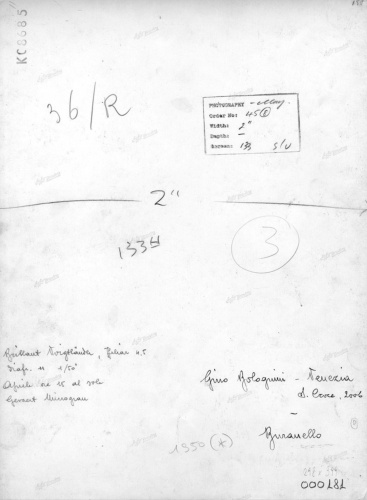 KC8685
36/R
PHOTOGRAPHY - May.
Order No: 45
Width: 2"
Depth: -
Screen: 133 S/U
2"
1334
3
Brillant Voigtländer, Heliar 4.5
Diafr. 11 1/50"
Aprile ore 15 al sole
Gevaert
Gino Bolognini - Venezia
S. Croce, 2006
-
Buranello
1350 (*)
000181